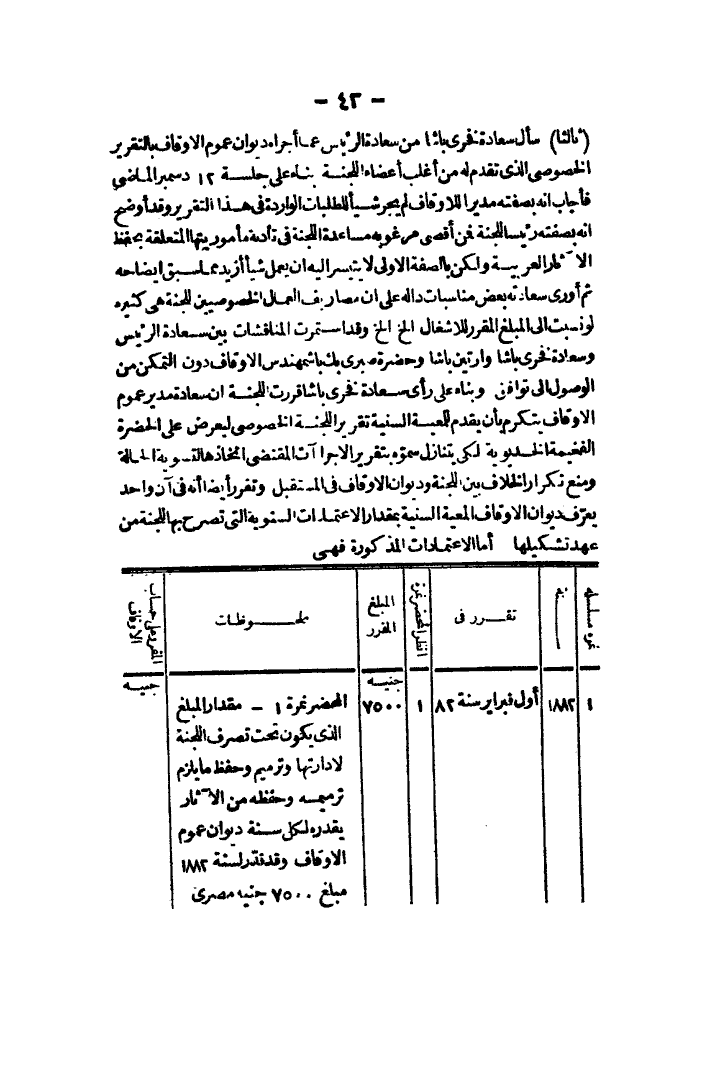 – ٤٢ –
(ثالثا) سأل سعادة فخرى باشا من سعادة الرئيس عما أجراه ديوان عموم الاوقاف بالتقرير
الخصوصى الذى تقدم له من أغلب أعضاء اللجنة بناء على جلسة ١٢ دسمبر الماضى
فأجاب انه بصفته مديرا للاوقاف لم يجر شيأ للطلبات الواردة فى هذا التقرير وقد أوضح
انه بصفته رئيسا للجنة فمن أقصى مرغوبه مساعدة اللجنة فى تأدية مأموريتها المتعلقة بحفظ
الآثار العربية ولكن بالصفة الاولى لا يتيسر اليه ان يعمل شيأ أزيد عما سبق ايضاحه
ثم أورى سعادته بعض مناسبات داله على ان مصاريف العمال الخصوصيين للجنة هى كثيره
لو نسبت الى المبلغ المقرر للاشغال الخ الخ وقد استمرت المناقشات بين سعادة الرئيس
وسعادة فخرى باشا وارتين باشا وحضرة صبرى بك باشمهندس الاوقاف دون التمكن من
الوصول الى توافق وبناء على رأى سعادة فخرى باشا قررت اللجنة ان سعادة مدير عموم
الاوقاف يتكرم بأن يقدم للمعية السنية تقرير اللجنة الخصوصى ليعرض على الحضرة
الفخيمة الخديوية لكى يتنازل سموه بتقرير الاجراآت المقتضى اتخاذها لتسوية الحالة
ومنع تكرار الخلاف بين اللجنة وديوان الاوقاف فى المستقبل وتقرر أيضا أنه فى آن واحد
يعرّف ديوان الاوقاف المعية السنية بمقدار الاعتمادات السنوية التى تصرح بها للجنة من
عهد تشكيلها أما الاعتمادات المذكورة فهى
نمره مسلسله
سنة
تقرر فى
انظر المحضر نمرة
المبلغ المقرر
ملحوظات
المقرر على حساب الاوقاف
جنيه
جنيه
١
١٨٨٢
أول فبراير سنة ٨٢
١
٧٥٠٠
المحضر نمرة ١ – مقدار المبلغ
الذى يكون تحت تصرف اللجنة
لادارتها وترميم وحفظ ما يلزم
ترميمه وحفظه من الآثار
يقدره لكل سنة ديوان عموم
الاوقاف وقد تقدّر لسنة ١٨٨٢
مبلغ ٧٥٠٠ جنيه مصرى